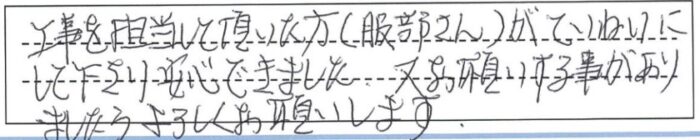 工事を担当して頂いた方(服部さん)がていねいに
して下さり安心できました。又お願いする事があり
ましたらよろしくお願いします。